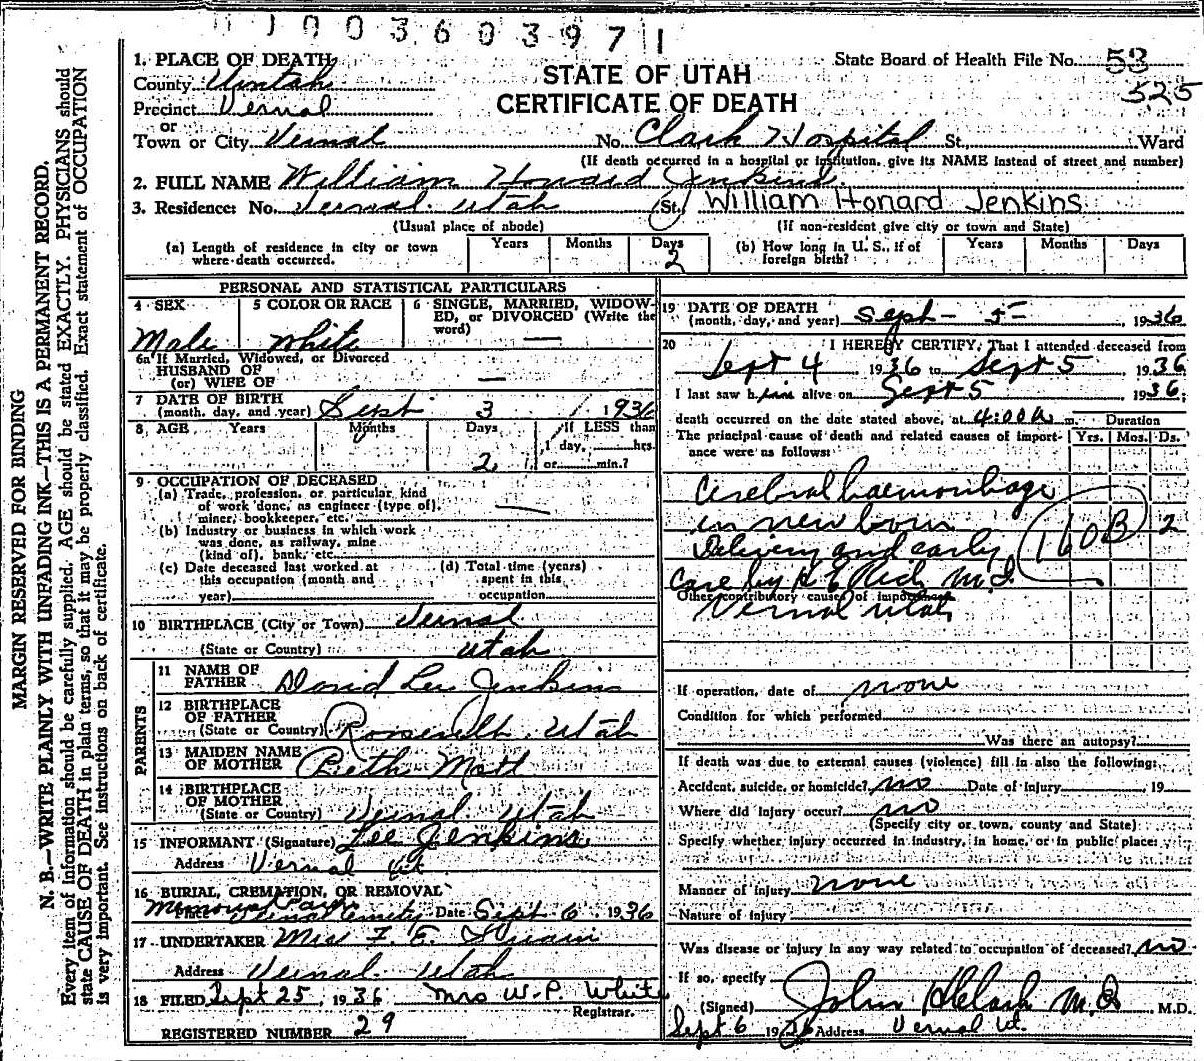 1003603971
1. PLACE OF DEATH
State Board of Health File No. 53
County Uintah
STATE OF UTAH
525
Precinct Vernal
CERTIFICATE OF DEATH
or
Town or City Vernal No. Clark Hospital St., Ward
(If death occurred in a hospital or institution, give its NAME instead of street and number)
2. FULL NAME William Howard Jenkins
3. Residence: No. Vernal Utah (St.) William Honard Jenkins
(Usual place of abode) (If non-resident give city or town and State)
(a) Length of residence in city or town where death occurred. Years Months Days 2
(b) How long in U. S., if of foreign birth? Years Months Days
PERSONAL AND STATISTICAL PARTICULARS
4 SEX 5 COLOR OR RACE 6 SINGLE, MARRIED, WIDOWED, or DIVORCED (Write the word)
Male White —
6a If Married, Widowed, or Divorced
HUSBAND OF
(or) WIFE OF —
7 DATE OF BIRTH
(month, day, and year) Sept 3 1936
8 AGE Years Months Days If LESS than
1 day, hrs.
2 or min.?
9 OCCUPATION OF DECEASED
(a) Trade, profession, or particular kind
of work done, as engineer (type of),
miner, bookkeeper, etc. —
(b) Industry or business in which work
was done, as railway, mine
(kind of), bank, etc.
(c) Date deceased last worked at
this occupation (month and
year)
(d) Total time (years)
spent in this
occupation
10 BIRTHPLACE (City or Town) Vernal
(State or Country) Utah
PARENTS
11 NAME OF
FATHER David Lee Jenkins
12 BIRTHPLACE
OF FATHER
(State or Country) Roosevelt, Utah
13 MAIDEN NAME
OF MOTHER Beth Mott
14 BIRTHPLACE
OF MOTHER
(State or Country) Vernal, Utah
15 INFORMANT (Signature) Lee Jenkins
Address Vernal Ut.
16 BURIAL, CREMATION, OR REMOVAL
Place Vernal Date Sept 6, 1936
17 UNDERTAKER F. E.
Address Vernal, Utah
18 FILED Sept 25, 1936 Mrs W. P. White
Registrar.
REGISTERED NUMBER 29
19 DATE OF DEATH
(month, day, and year) Sept - 5 - 1936
20 I HEREBY CERTIFY, That I attended deceased from
Sept 4 1936 to Sept 5 1936
I last saw him alive on Sept 5 1936;
death occurred on the date stated above, at 4:00 a m.
Duration
The principal cause of death and related causes of importance were as follows:
Yrs. Mos. Ds.
Cerebral haemorrhage
in new born 160B 2
Delivery and early
care by R E Rich M.D.
Other contributory causes of importance
Vernal Utah
If operation, date of none
Condition for which performed
Was there an autopsy?
If death was due to external causes (violence) fill in also the following:
Accident, suicide, or homicide? no Date of Injury 19
Where did injury occur? no
(Specify city or town, county and State)
Specify whether injury occurred in industry, in home, or in public place:
Manner of Injury none
Nature of Injury
Was disease or injury in any way related to occupation of deceased? no
If so, specify
(Signed) John H Clark M.D. M.D.
Sept 6 1936 Address Vernal Ut.
MARGIN RESERVED FOR BINDING
N. B.—WRITE PLAINLY WITH UNFADING INK—THIS IS A PERMANENT RECORD.
Every item of information should be carefully supplied. AGE should be stated EXACTLY. PHYSICIANS should
state CAUSE OF DEATH in plain terms, so that it may be properly classified. Exact statement of OCCUPATION
is very important. See instructions on back of certificate.